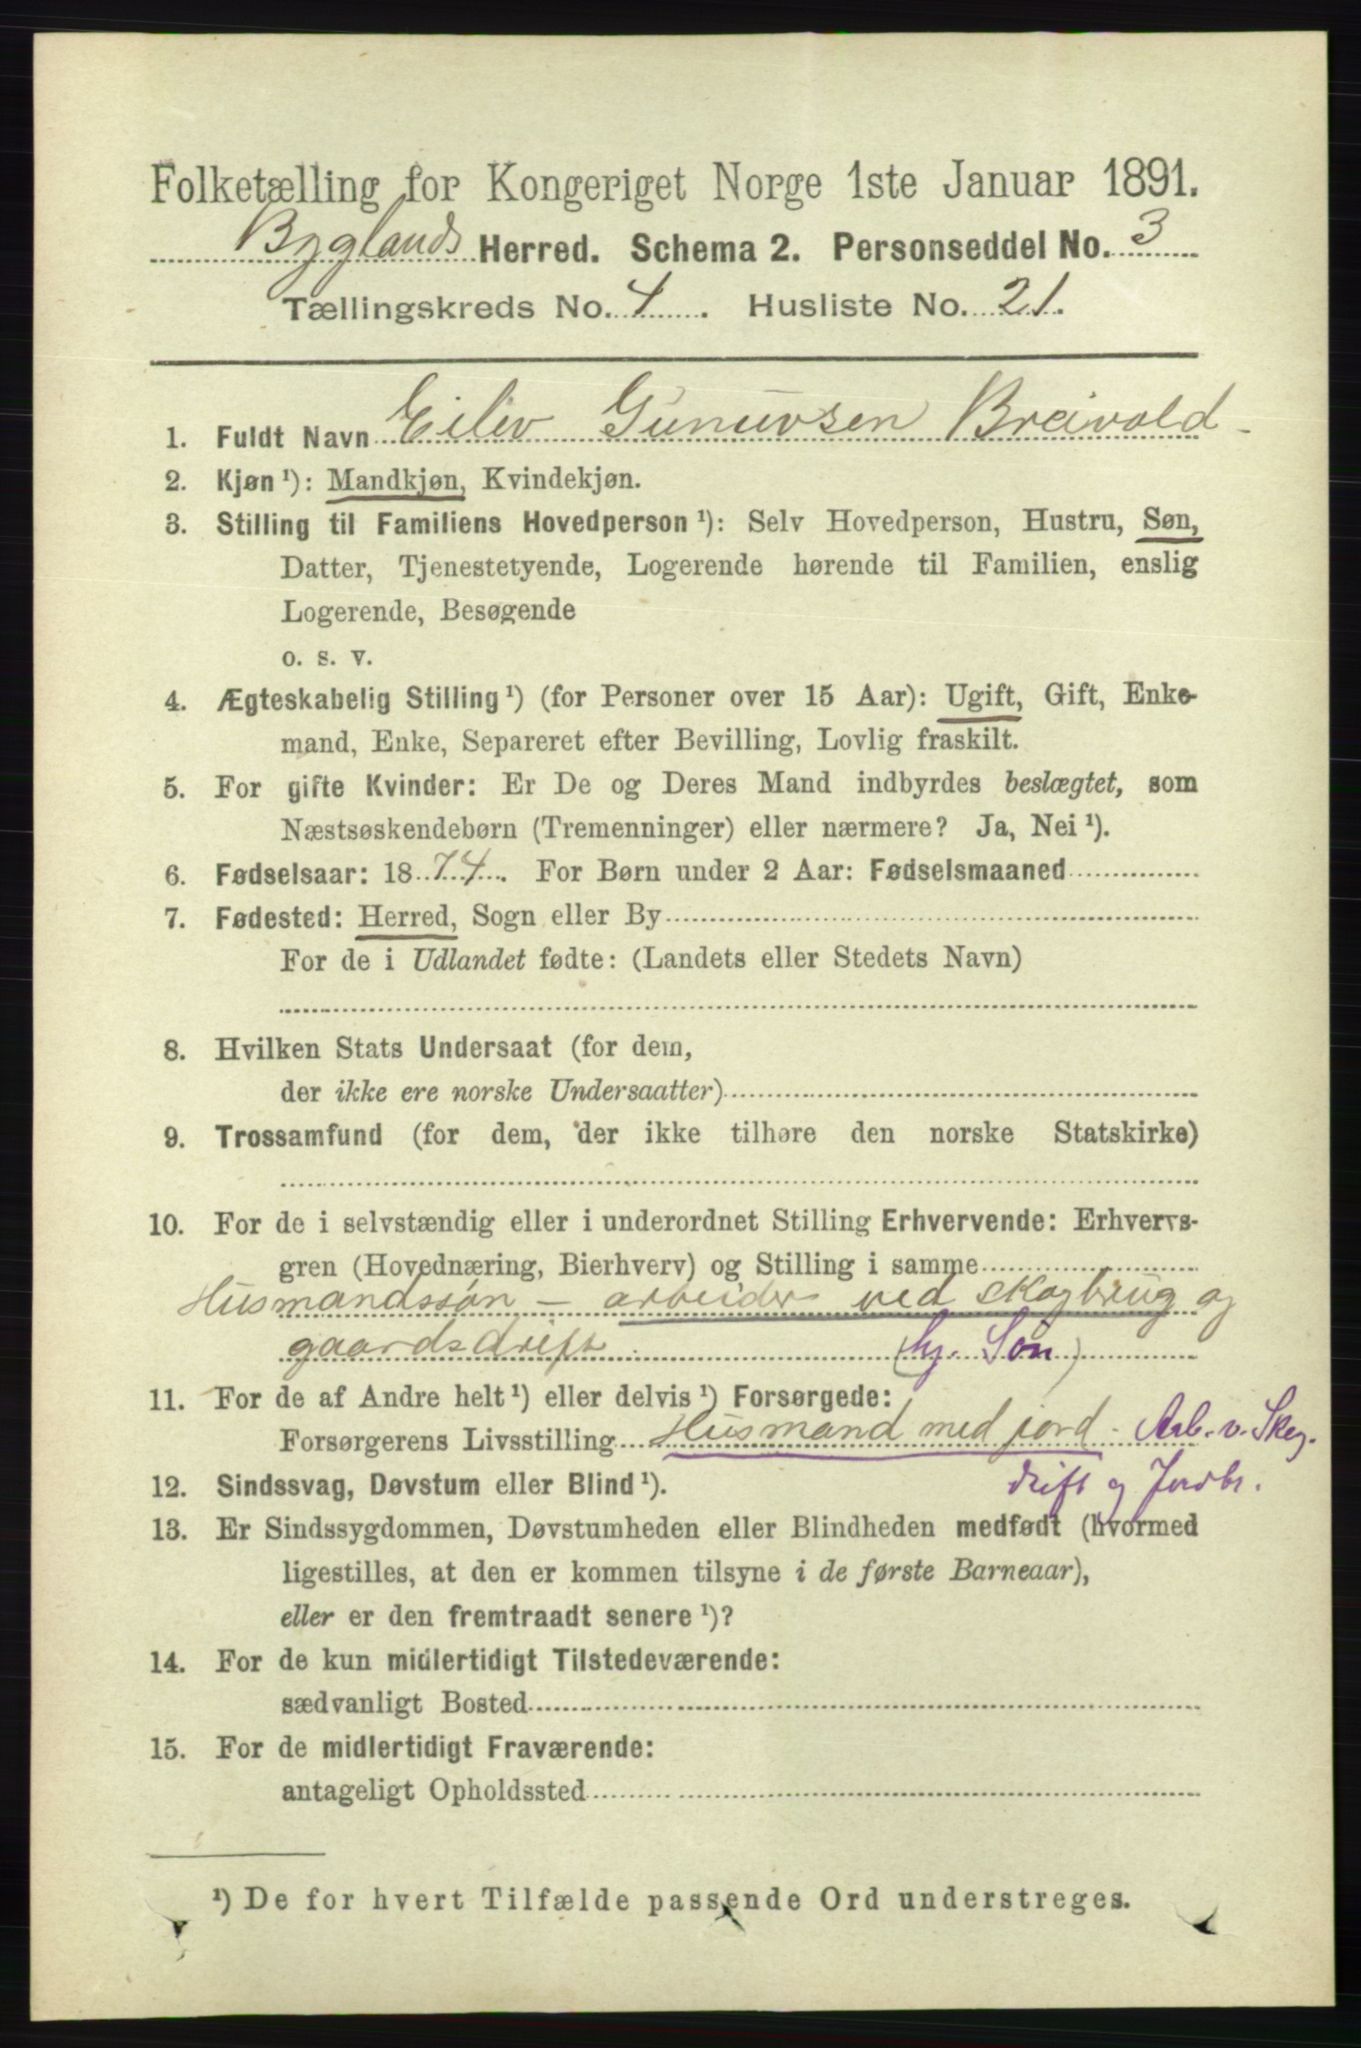 Folketælling for Kongeriget Norge 1ste Januar 1891.
Byglands Herred. Schema 2. Personseddel No. 3
Tællingskreds No. 4. Husliste No. 21.
1. Fuldt Navn Eilev Gunuvsen Breivold
2. Kjøn¹): Mandkjøn, Kvindekjøn.
3. Stilling til Familiens Hovedperson¹): Selv Hovedperson, Hustru, Søn,
Datter, Tjenestetyende, Logerende hørende til Familien, enslig
Logerende, Besøgende
o. s. v.
4. Ægteskabelig Stilling¹) (for Personer over 15 Aar): Ugift, Gift, Enke-
mand, Enke, Separeret efter Bevilling, Lovlig fraskilt.
5. For gifte Kvinder: Er De og Deres Mand indbyrdes beslægtet, som
Næstsøskendebørn (Tremenninger) eller nærmere? Ja, Nei¹).
6. Fødselsaar: 1874. For Børn under 2 Aar: Fødselsmaaned
7. Fødested: Herred, Sogn eller By
For de i Udlandet fødte: (Landets eller Stedets Navn)
8. Hvilken Stats Undersaat (for dem,
der ikke ere norske Undersaatter)
9. Trossamfund (for dem, der ikke tilhøre den norske Statskirke)
10. For de i selvstændig eller i underordnet Stilling Erhvervende: Erhvervs-
gren (Hovednæring, Bierhverv) og Stilling i samme
Husmandssøn - arbeider ved skogbrug og
gaardsdrift (hj. Søn)
11. For de af Andre helt¹) eller delvis¹) Forsørgede:
Forsørgerens Livsstilling Husmand med jord - Arb. v. Skog.
drift og Jordbr.
12. Sindssvag, Døvstum eller Blind¹).
13. Er Sindssygdommen, Døvstumheden eller Blindheden medfødt (hvormed
ligestilles, at den er kommen tilsyne i de første Barneaar),
eller er den fremtraadt senere¹)?
14. For de kun midlertidigt Tilstedeværende:
sædvanligt Bosted
15. For de midlertidigt Fraværende:
antageligt Opholdssted
¹) De for hvert Tilfælde passende Ord understreges.